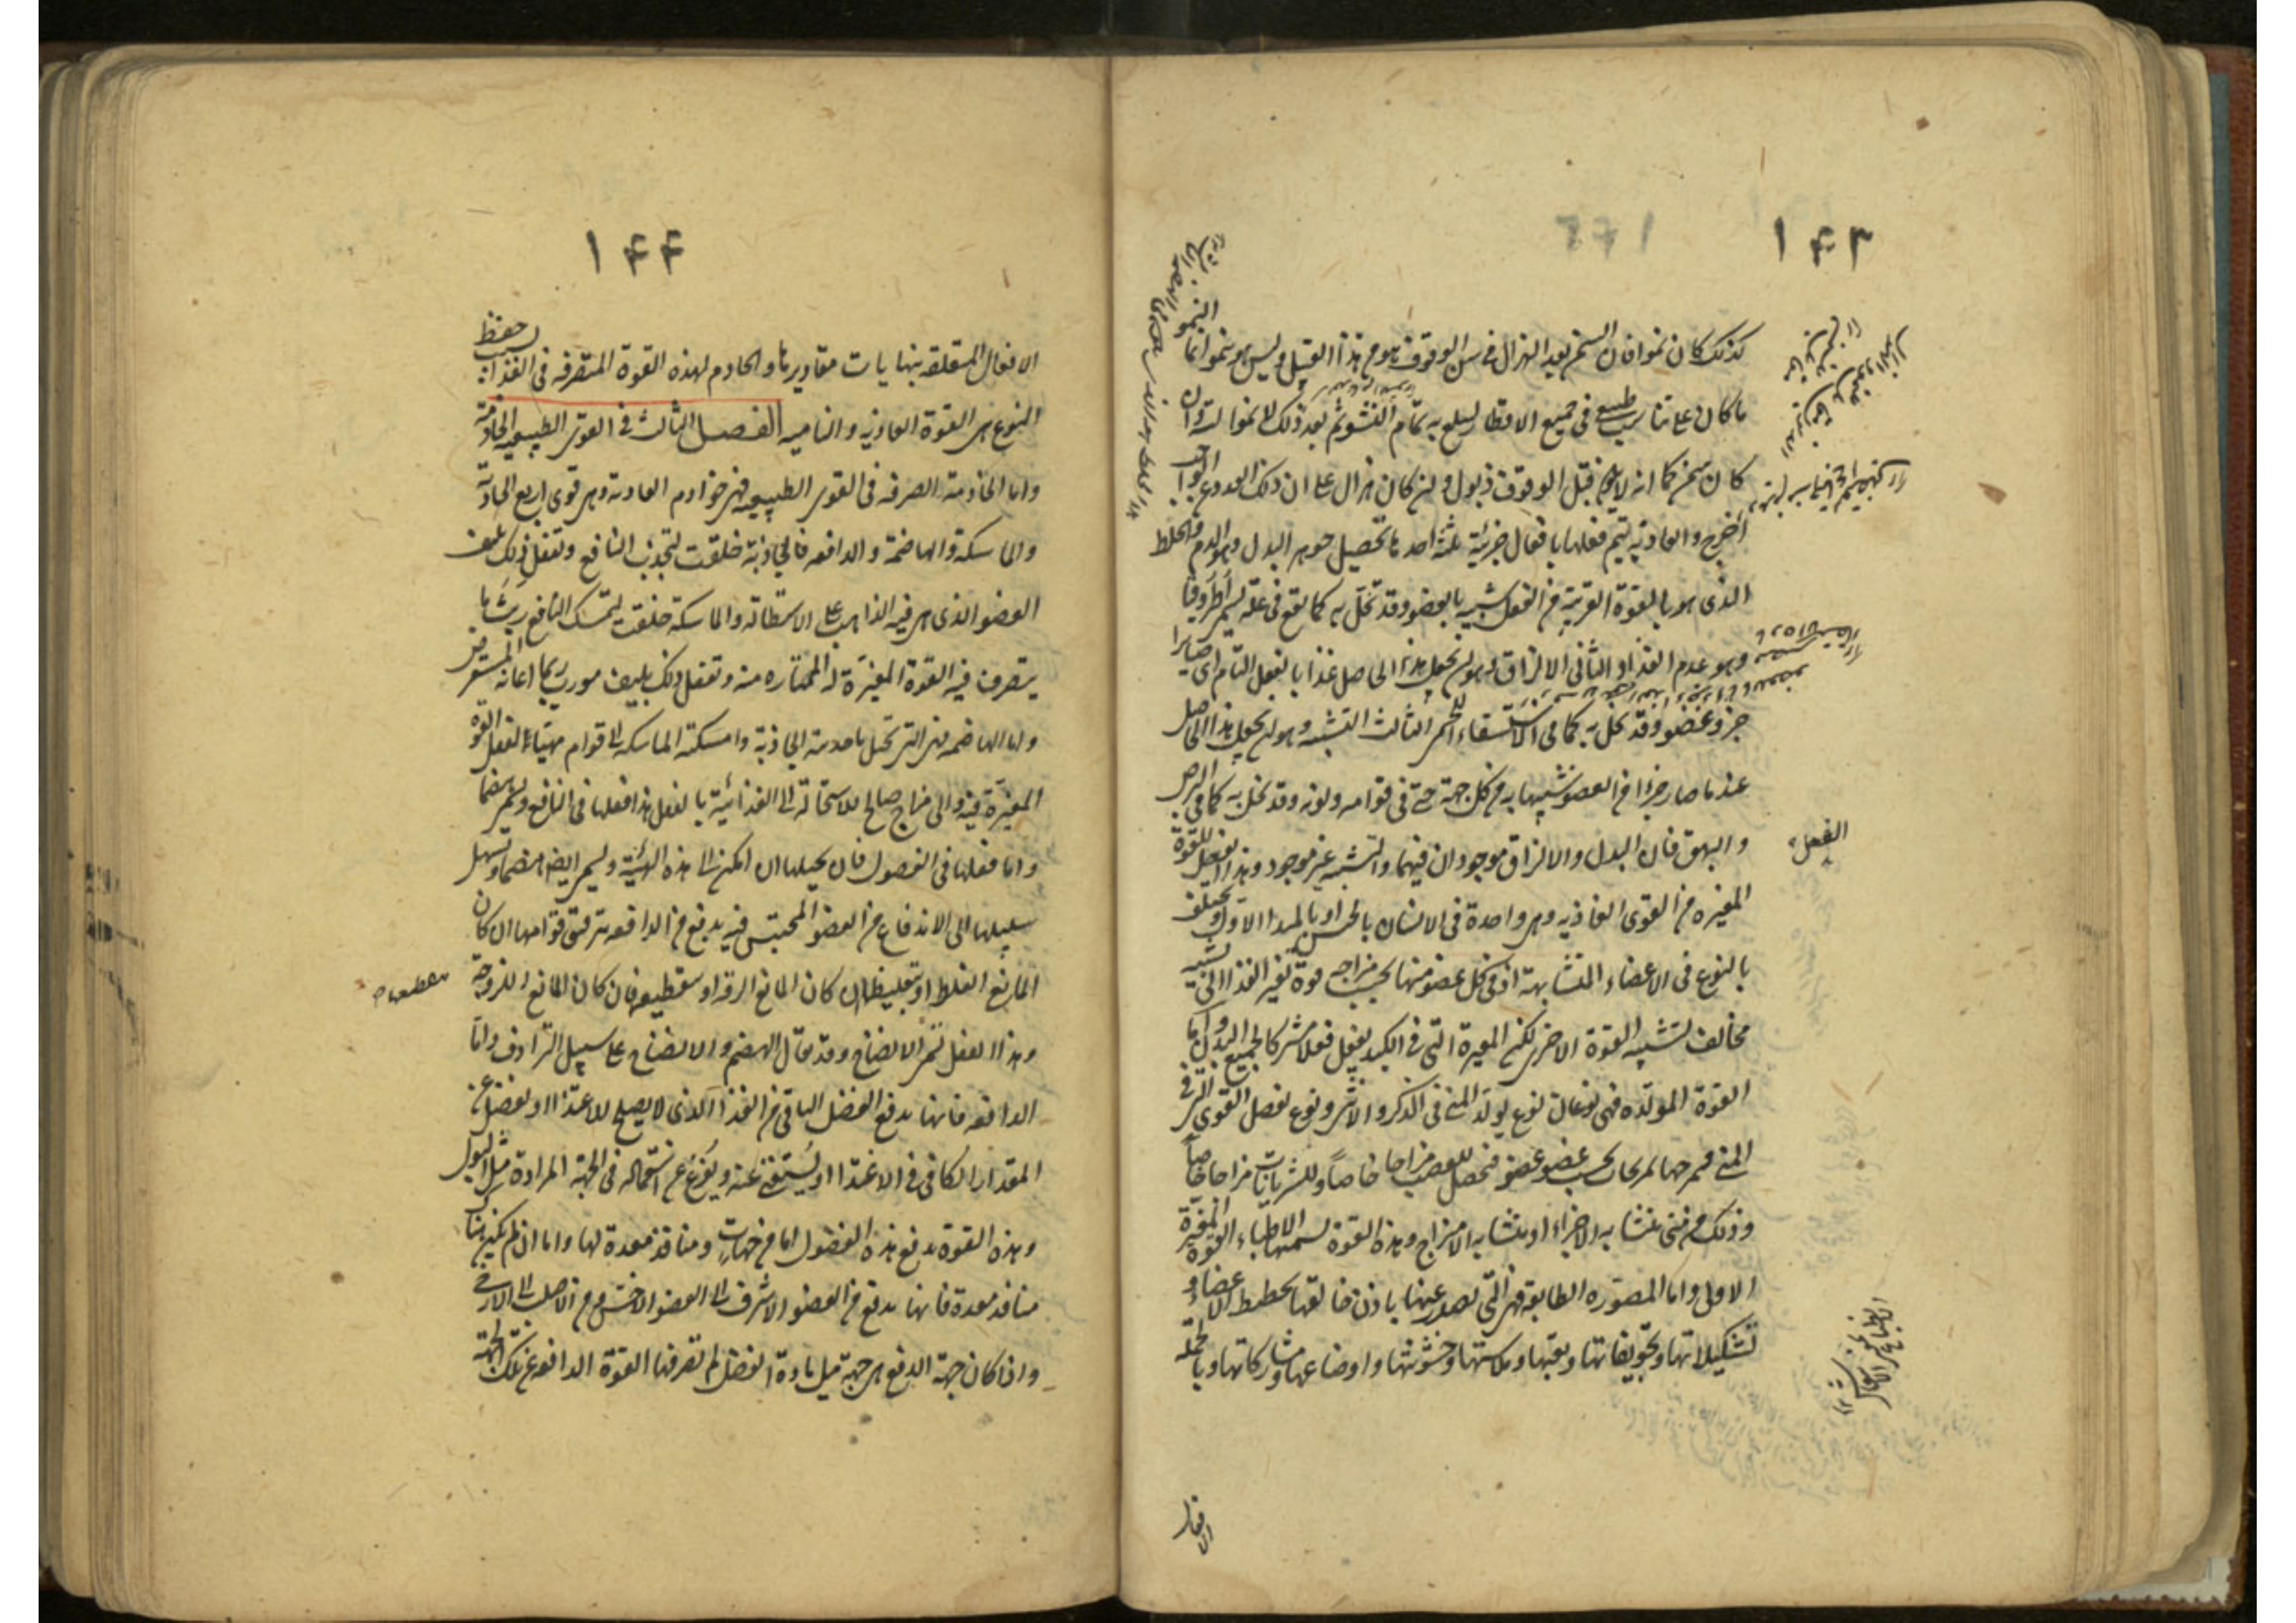 ١٤٣
كذلك كان نموا فان السمن بعد الهزال في سن الوقوف هو من هذا القبيل وليس هو بنمو انما النمو
ما كان على تناسب طبيعى في جميع الاقطار ليبلغ به تمام النشو ثم بعد ذلك لا نمو البتة وان
كان سمن كما انه لا يكون قبل الوقوف ذبول وان كان هزال على ان ذلك ابعد وعن الواجب
اخرج والغاذيه يتم فعلها بافعال جزئية ثلثة احدها تحصيل جوهر البدل وهو الدم والخلط
الذى هو بالقوة القريبة من الفعل شبيه بالعضو وقد تخل به كما يقع في علة تسمى اطروفيا
وهو عدم الغذاء والثانى الالزاق وهو ان يجعل هذا الحاصل غذا بالفعل التام اى صايرا
جزو عضو وقد تخل به كما في الاستسقاء اللحمى الثالث التشبيه وهو ان يجعل هذا الحاصل
عند ما صار جزءا من العضو شبيها به من كل جهة حتى في قوامه ولونه وقد تخل به كما في البرص
والبهق فان البدل والالزاق موجودان فيهما والتشبيه غير موجود وهذا الفعل للقوة
الفعل
المغيره من القوى الغاذيه وهى واحدة في الانسان بالجنس او بالمبدا الاول ويختلف
بالنوع في الاعضاء المتشابهة اذ في كل عضو منها بحسب مزاجه قوة تغير الغذا الى تشبيه
مخالف لتشبيه القوة الاخرى لكن المغيرة التى في الكبد يفعل فعلا مشتركا لجميع البدن واما
القوة المولده فهى نوعان نوع يولد المنى في الذكر والانثى ونوع يفصل القوى التى في
المنى فيمزجها تمزيجات بحسب عضو عضو فيحصل للعصب مزاجا خاصا وللشريانات مزاجا خاصا
وذلك من منى متشابه الاجزاء او متشابه الامتزاج وهذه القوة تسميها الاطباء القوة المغيرة
الاولى واما المصوره الطابعة فهى التى يصدر عنها باذن خالقها تخطيط الاعضاء و
تشكيلاتها وتجويفاتها وثقبها وملاستها وخشونتها واوضاعها ومشاركاتها وبالجمله
الافعال
١٤٤
الافعال المتعلقه بنهايات مقاديرها والخادم لهذه القوة المتصرفه في الغذا بسبب حفظ
النوع هى القوة الغاذيه والناميه الفصل الثالث في القوى الطبيعيه الخادمة
واما الخادمة الصرفه في القوى الطبيعيه فهى خوادم الغاذية وهى قوى اربع الجاذبة
والماسكة والهاضمة والدافعه فالجاذبة خلقت لتجذب النافع وتفعل ذلك بليف
العضو الذى هى فيه الذاهب على الاستطاله والماسكة خلقت لتمسك النافع ريث ما
يتصرف فيه القوة المغيرة له الممتاره منه وتفعل ذلك بليف مورب ربما اعانه المستعرض
واما الهاضمه فهى التى تحيل ما جذبته الجاذبة وامسكته الماسكه الى قوام مهيأ لفعل القوة
المغيرة فيه والى مزاج صالح للاستحالة الى الغذائية بالفعل هذا فعلها في النافع ويسمى هضما
واما فعلها في الفضول فان يحيلها ان امكن الى هذه الهيئة ويسمى ايضا هضما او يسهل
سبيلها الى الاندفاع من العضو المحتبس فيه بدفع من الدافعه بترقيق قوامها ان كان
المانع الغلظ او تغليظها ان كان المانع الرقة او تقطيعه ان كان المانع اللزوجة
وهذا الفعل يسمى الانضاج وقد يقال الهضم والانضاج على سبيل الترادف واما
الدافعه فانها يدفع الفضل الباقى من الغذا الذى لا يصلح للاغتذا او يفضل عن
المقدار الكافى في الاغتذا او يستغنى عنه ويفرغ عن استعماله في الجهة المرادة مثل البول
وهذه القوة يدفع هذه الفضول اما من جهات ومنافذ معدة لها واما ان لم يكن هناك
منافذ معدة فانها يدفع من العضو الاشرف الى العضو الاخس ومن الاصلب الى الارخى
واذا كان جهة الدفع هى جهة ميل مادة الفضل لم تصرفها القوة الدافعه عن تلك الجهة